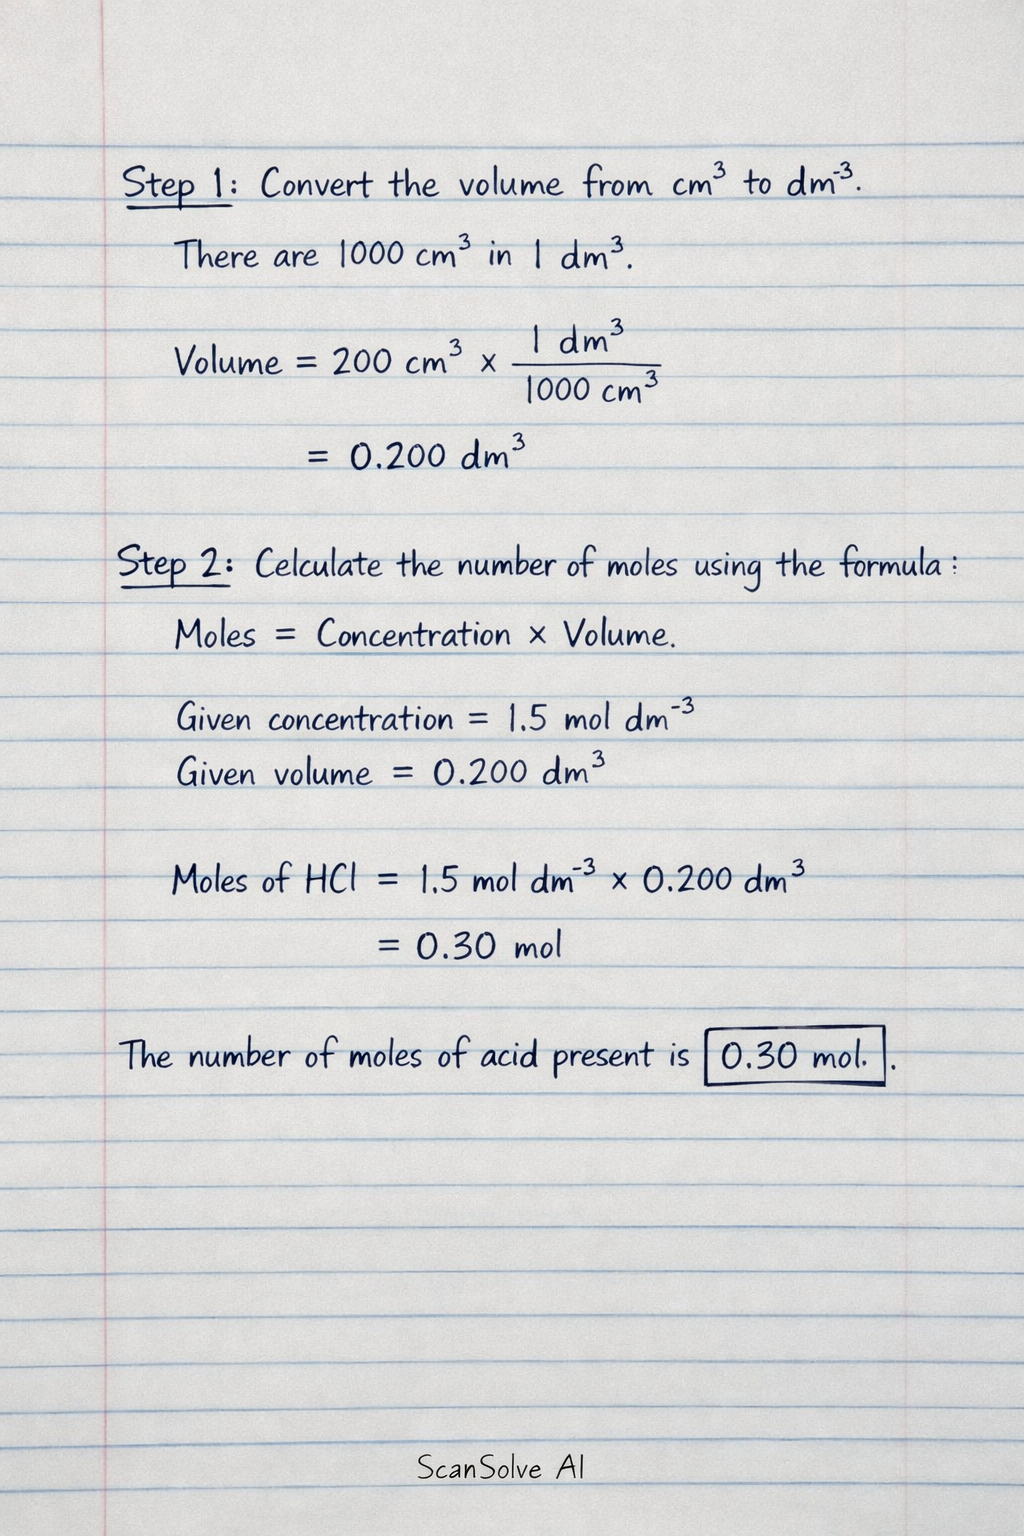 Step 1: Convert the volume from cm³ to dm⁻³.
There are 1000 cm³ in 1 dm³.
Volume = 200 cm³ × 1 dm³ / 1000 cm³
= 0.200 dm³
Step 2: Celculate the number of moles using the formula:
Moles = Concentration × Volume.
Given concentration = 1.5 mol dm⁻³
Given volume = 0.200 dm³
Moles of HCl = 1.5 mol dm⁻³ × 0.200 dm³
= 0.30 mol
The number of moles of acid present is 0.30 mol. .
ScanSolve AI